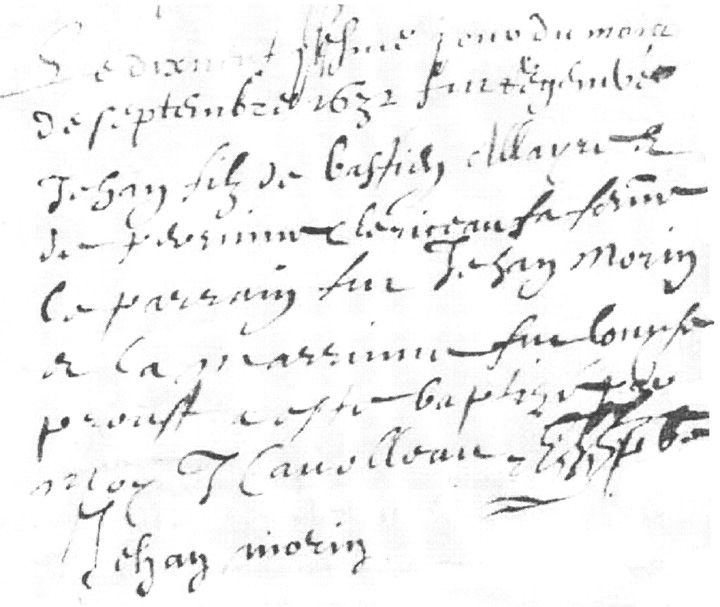 Le dix neuf iesme jour du mois
de septembre 1632 fut
Jehan filz de bastien Allayre &
de perrinne Clericeau sa feme
le parrain fut Jehan Morin
& la marrinne fut Louyse
proust a esté baptizé par
Moy J Cavolleau pbre
Jehan morin